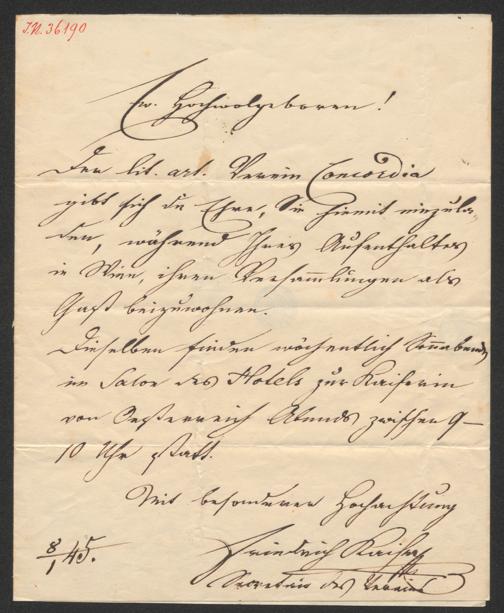 I.N. 36190
Ew. Hochwolgeboren!
Der lit. art. Verein Concordia
gibt sich die Ehre, Sie hiemit einzula-
den, während Ihres Aufenthaltes
in Wien, ihren Versammlungen als
Gast beizuwohnen.
Dieselben finden wöchentlich Sonnabends
im Salon des Hotels zur Kaiserin
von Oesterreich Abends zwischen 9-
10 Uhr statt.
Mit besonderer Hochachtung
Friedrich Kaiser
8/1 45.
Secretär des Vereins